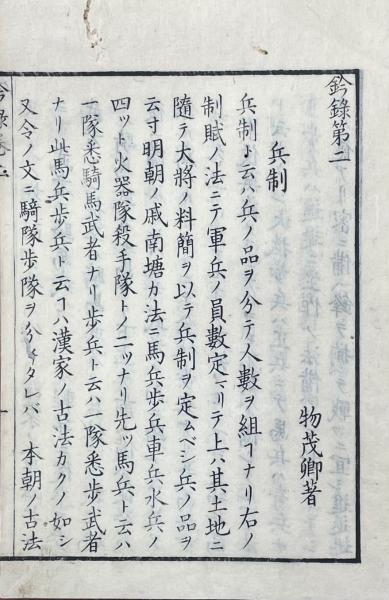 鈐錄第二
物茂卿著
兵制
兵制ト云ハ兵ノ品ヲ分テ人數ヲ組ヿナリ右ノ
制賦ノ法ニテ軍兵ノ員數定マリテ上ハ其土地ニ
隨テ大將ノ料簡ヲ以テ兵制ヲ定ムベシ兵ノ品ヲ
云寸明朝ノ戚南塘カ法ニ馬兵歩兵車兵水兵ノ
四ツト火器隊殺手隊トノ二ツナリ先ツ馬兵ト云ハ
一隊悉騎馬武者ナリ歩兵ト云ハ一隊悉歩武者
ナリ此馬兵歩兵ト云ヿハ漢家ノ古法カクノ如シ
又令ノ文ニ騎隊歩隊ヲ分チタレバ 本朝ノ古法